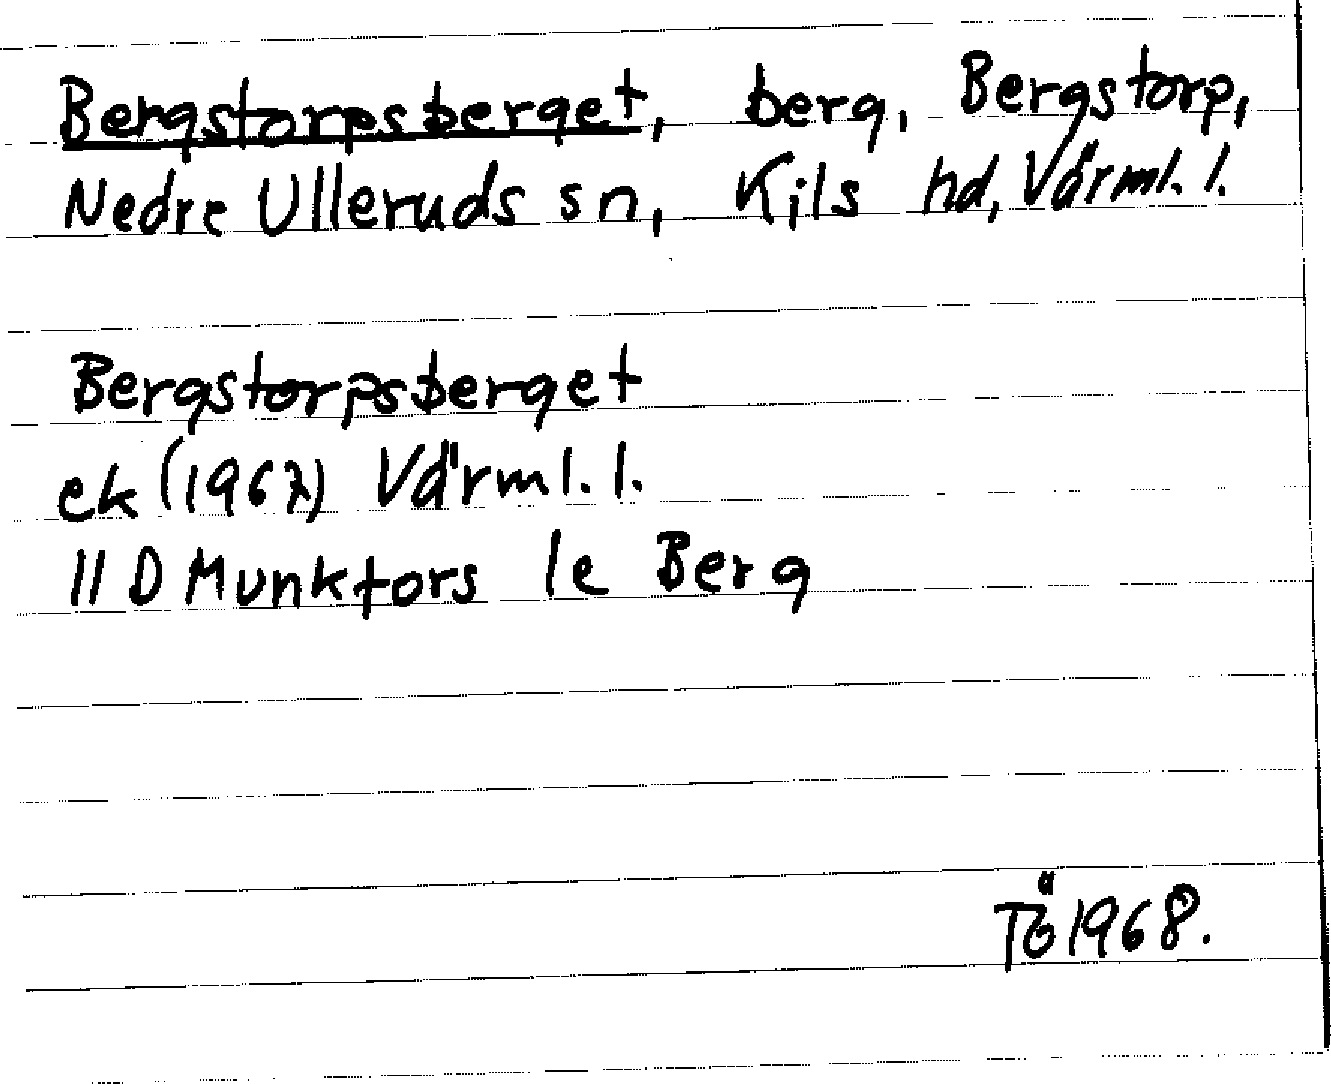 Bergstorpsberget, berg, Bergstorp,
Nedre Ulleruds sn, Kils hd, Värml. l.
Bergstorpsberget
ek (1967) Värml. l.
11 D Munkfors 1e Berg
TÖ 1968.